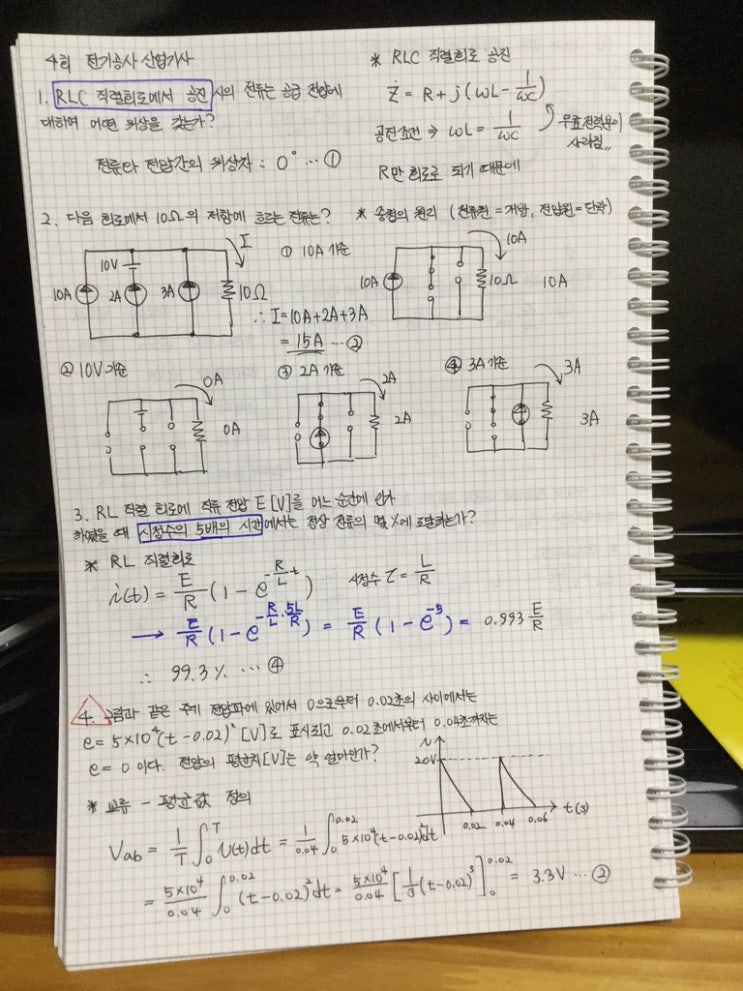 4회 전기공사 산업기사
1. RLC 직렬회로에서 공진 시의 전류는 공급 전압에
대하여 어떤 위상을 갖는가?
전류와 전압간의 위상차 : 0° … ①
* RLC 직렬회로 공진
Ż = R + j(ωL - 1/ωC)
공진조건 ⇒ ωL = 1/ωC
무효전력분이
사라짐
R만 회로로 되기 때문에
2. 다음 회로에서 10Ω의 저항에 흐르는 전류는?
* 중첩의 원리 (전류원 = 개방, 전압원 = 단락)
10V
I
10A
2A
3A
10Ω
① 10A 기준
10A
10A
10Ω
10A
∴ I = 10A + 2A + 3A
= 15A … ②
② 10V 기준
0A
0A
③ 2A 기준
2A
2A
④ 3A 기준
3A
3A
3. RL 직렬 회로에 직류 전압 E [V]를 어느 순간에 인가
하였을 때 시정수의 5배의 시간에서는 정상 전류의 몇 %에 도달하는가?
* RL 직렬회로
i(t) = E/R (1 - e^(-R/L t))
시정수 τ = L/R
→ E/R (1 - e^(-R/L · 5L/R)) = E/R (1 - e^-5) = 0.993 E/R
∴ 99.3 % … ④
4. 그림과 같은 주기 전압파에 있어서 0으로부터 0.02초의 사이에서는
e = 5×10⁴(t-0.02)² [V]로 표시되고 0.02초에서부터 0.04초까지는
e = 0 이다. 전압의 평균치[V]는 약 얼마인가?
v
20V
0.02
0.04
0.06
t(s)
* 교류 - 평균값 정의
Vab = 1/T ∫₀^T v(t)dt = 1/0.04 ∫₀^0.02 5×10⁴(t-0.02)²dt
= 5×10⁴/0.04 ∫₀^0.02 (t-0.02)²dt = 5×10⁴/0.04 [1/3 (t-0.02)³]₀^0.02 = 3.3V … ②